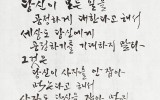 당신이 모든 일을
공정하게 대한다고 해서
세상도 당신에게
공정하기를 기대하지 말라.
그것은
당신이 사자를 안 잡아
먹는다고 해서
사자도 당신을 안 잡아